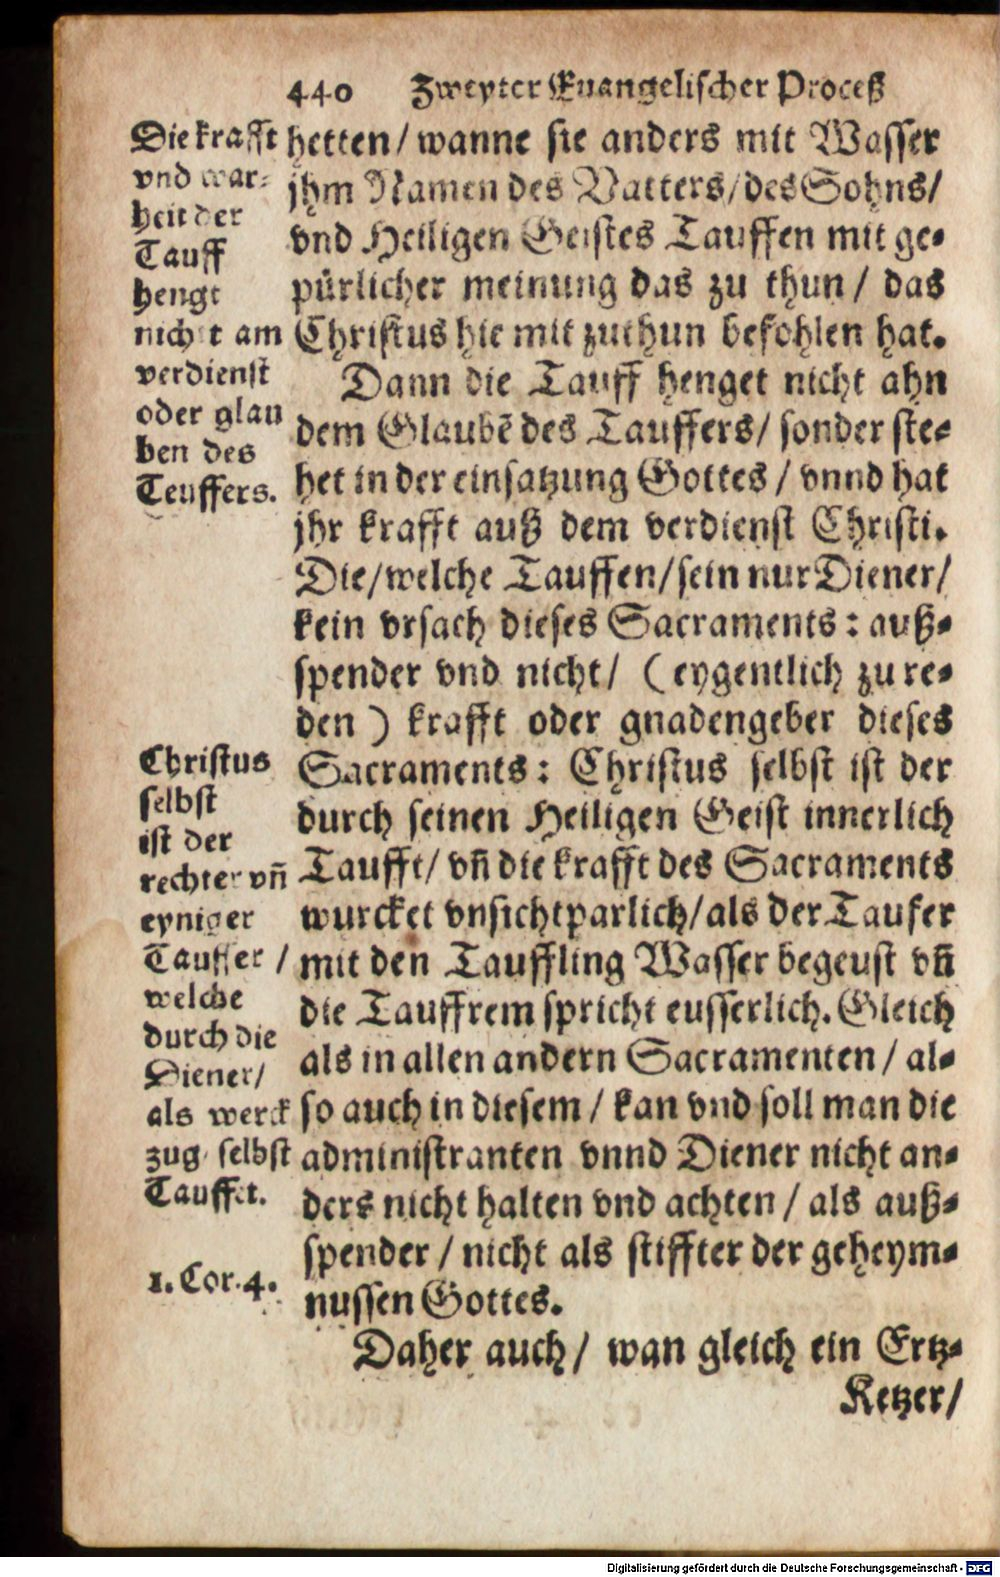 440 Zweyter Euangelischer Proceß
Die krafft
vnd war-
heit der
Tauff
hengt
nicht am
verdienst
oder glau
ben des
Teuffers.
hetten / wanne sie anders mit Wasser
jhm Namen des Vatters / des Sohns /
vnd Heiligen Geistes Tauffen mit ge-
pürlicher meinung das zu thun / das
Christus hie mit zuthun befohlen hat.
Dann die Tauff henget nicht ahn
dem Glaubẽ des Tauffers / sonder ste-
het in der einsatzung Gottes / vnnd hat
jhr krafft auß dem verdienst Christi.
Die / welche Tauffen / sein nur Diener /
kein vrsach dieses Sacraments : auß-
spender vnd nicht / ( eygentlich zu re-
den ) krafft oder gnadengeber dieses
Christus
selbst
ist der
rechter vñ
eyniger
Tauffer /
welche
durch die
Diener /
als werck
zug selbst
Tauffet.
Sacraments : Christus selbst ist der
durch seinen Heiligen Geist innerlich
Taufft / vñ die krafft des Sacraments
wurcket vnsichtparlich / als der Taufer
mit den Tauffling Wasser begeust vñ
die Tauffrem spricht eusserlich. Gleich
als in allen andern Sacramenten / al-
so auch in diesem / kan vnd soll man die
administranten vnnd Diener nicht an-
ders nicht halten vnd achten / als auß-
spender / nicht als stiffter der geheym-
1. Cor. 4.
nussen Gottes.
Daher auch / wan gleich ein Ertz-
Ketzer /
Digitalisierung gefördert durch die Deutsche Forschungsgemeinschaft - DFG